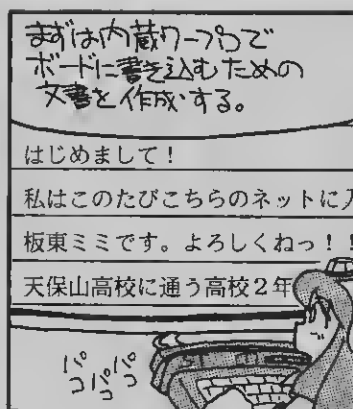 まずは内蔵ワープロで
ボードに書き込むための
文書を作成する。
はじめまして！
私はこのたびこちらのネットに
板東ミミです。よろしくねっ！！
天保山高校に通う高校２年
パコパコパコ